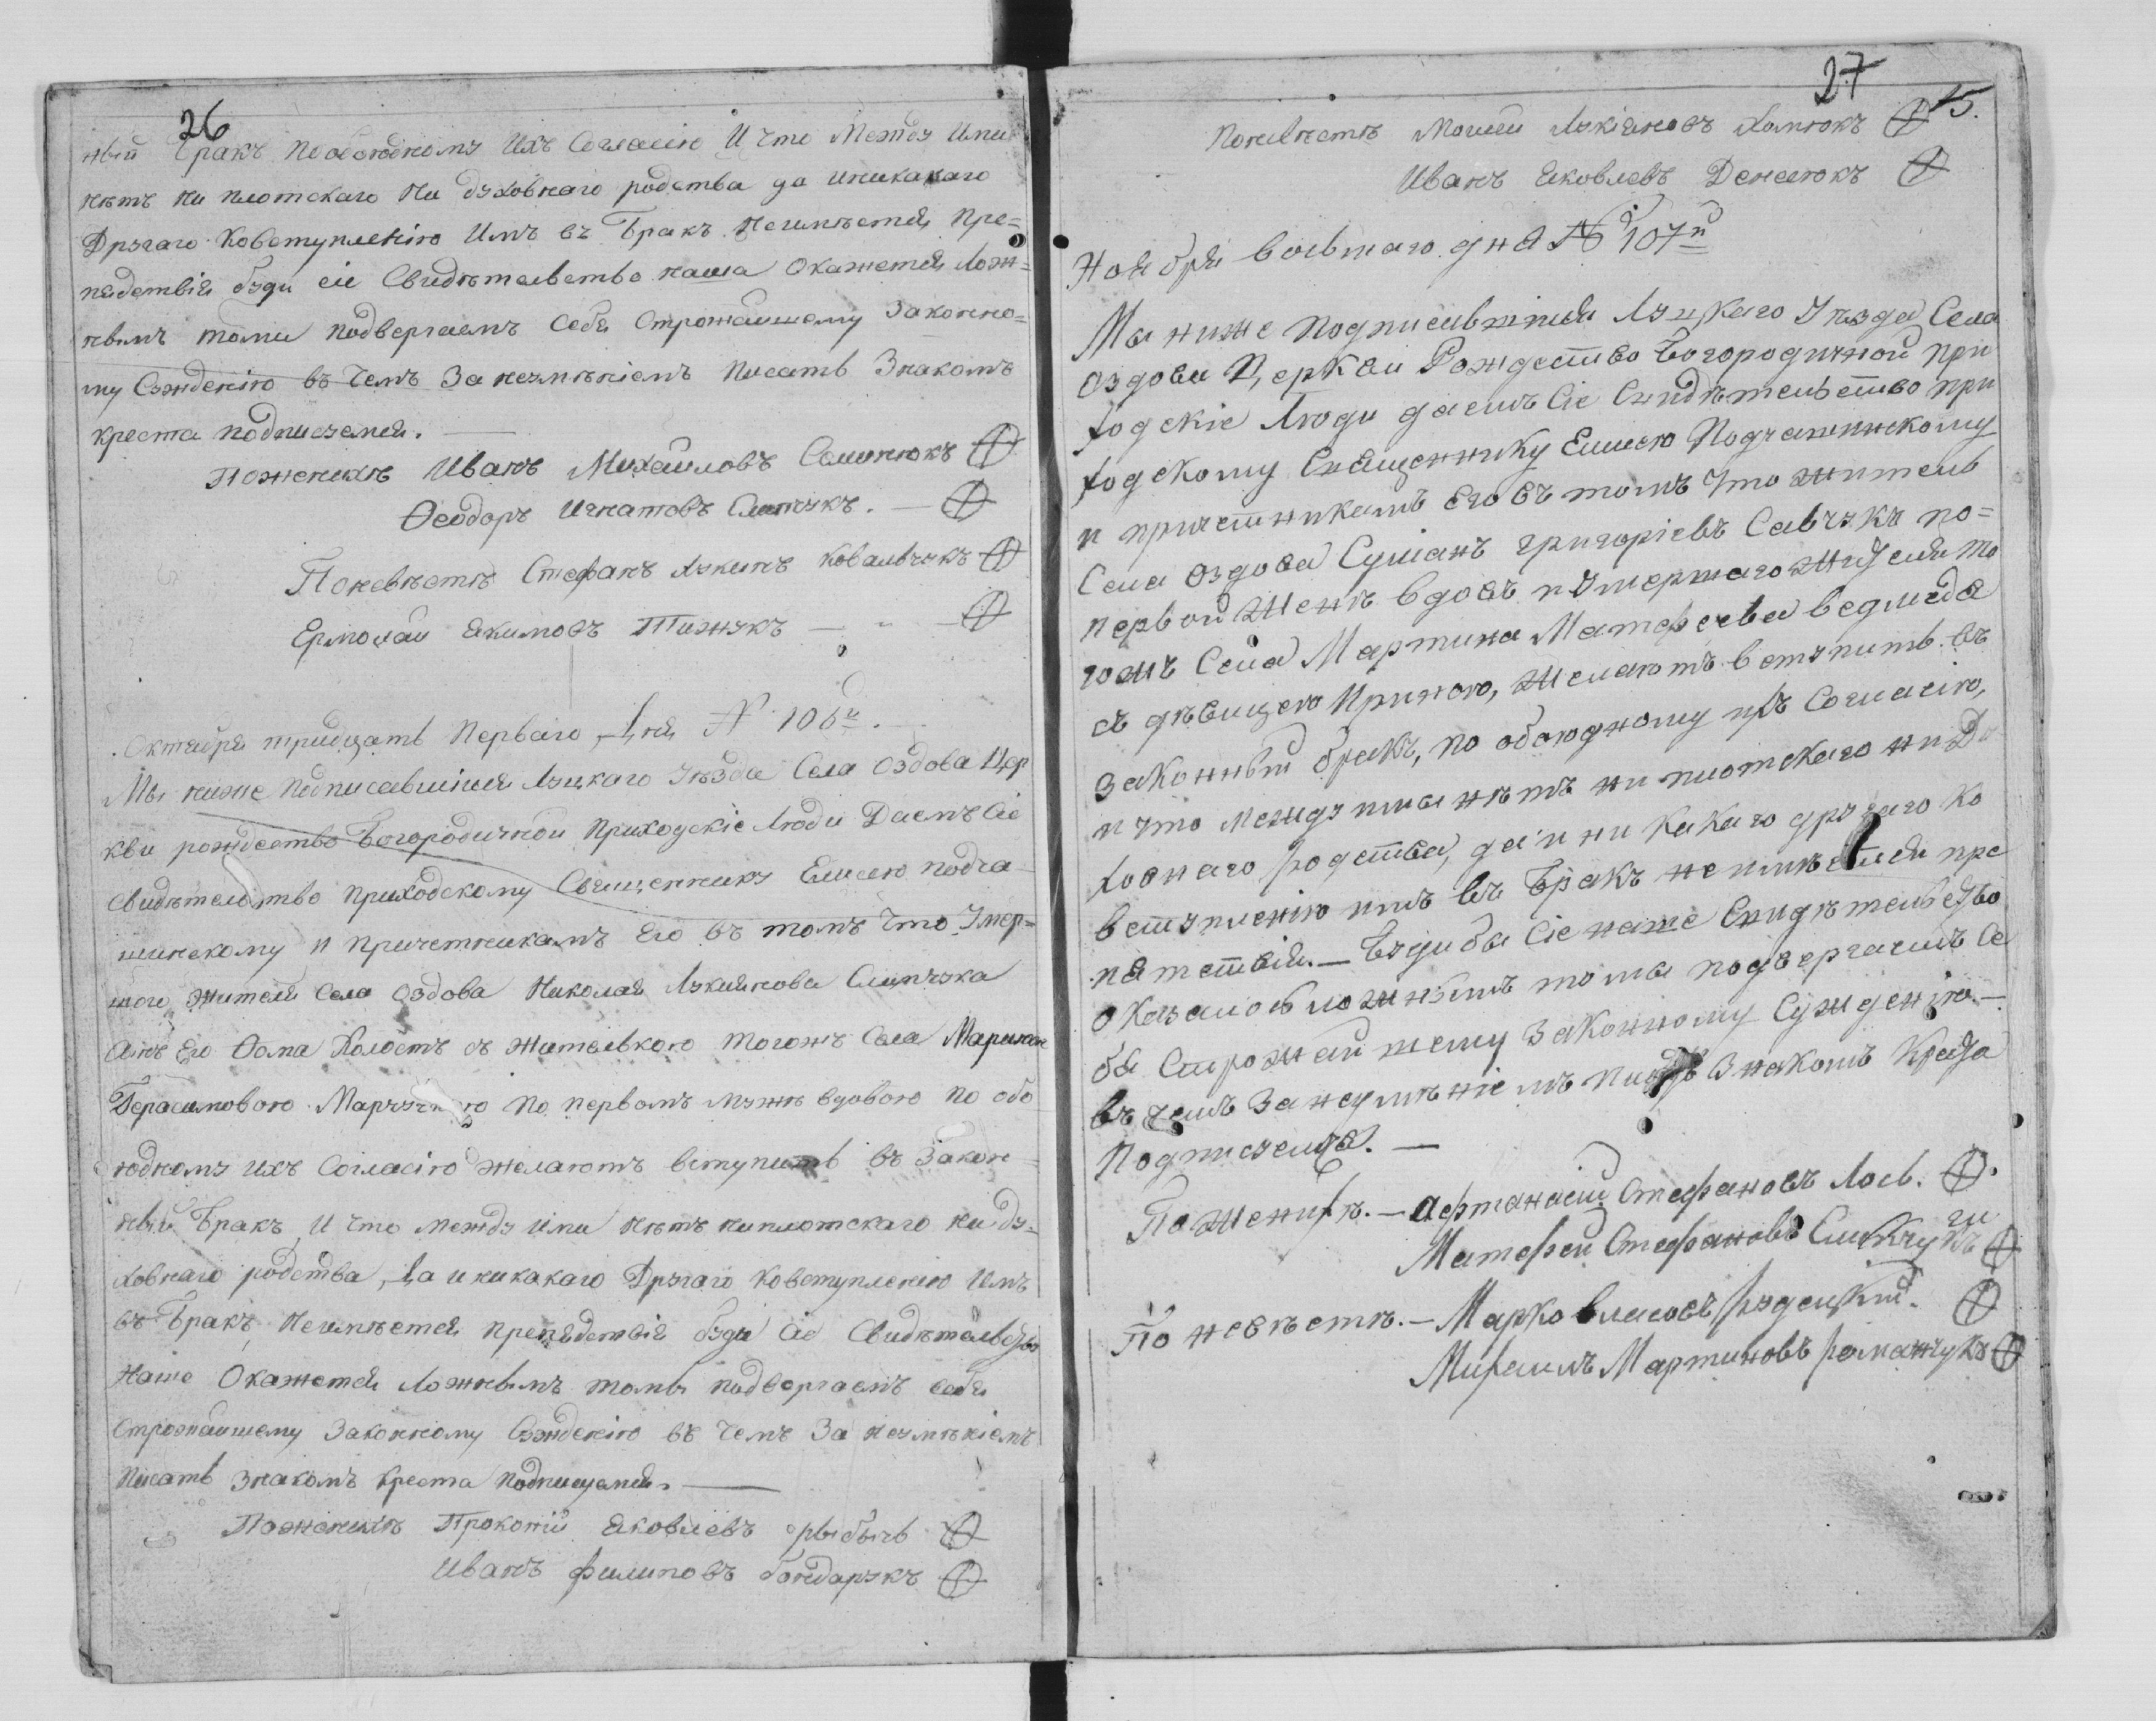 26
ный Бракъ пообоюдному Ихъ Согласію И что Между Ими
нѣтъ ни плотскаго ни духовнаго родства да иникакаго
Другаго Ковступленію Имъ въ Бракъ неимѣется Пре=
пядствія буди сіе Свидѣтельство наша Окажется Лож=
нымъ томы подвергаемъ Себя Строжайшему Законно=
му Сужденію въ Чемъ За неумѣніемъ Писать Знакомъ
креста подписуемся.
Поженихѣ Иванъ Михайловъ Семенюкъ
Ѳеодоръ Игнатовъ Слипчукъ.
Поневѣстѣ Стефанъ Лукинъ Ковальчукъ
Ермолай Якимовъ Тижукъ
Октября тридцать Перваго Дня № 106й.
Мы ниже Подписавшіися Луцкаго Уѣзда Села Оздова Цер
кви рождество Богородичной Приходскіе Люди Даемъ Сіе
Свидѣтельство Приходскому Священнику Елисею подча
шинскому и Причетникамъ Его въ томъ Что Умер=
шого жителя Села Оздова Николая Лукиянова Слипчука
Сынъ Его Ѳома Холостъ съ жителькою Тогожъ Села Марианн
Герасимовою по первомъ мужѣ вдовою по обо
юдному ихъ Согласію желаютъ вступить въ Закон=
ный Бракъ И что между ими нѣтъ ниплотскаго ни ду=
ховнаго родства, Да и никакаго Другаго Ковступленію Имъ
въ Бракъ Неимѣется препядствія буди Сіе Свидѣтельство
Наше Окажется Ложнымъ томы подвергаемъ себя
Строжайшему Законному Сужденію въ Чемъ За неумѣніемъ
Писать Знакомъ Креста Подписуемся.
Поженихѣ Прокопій Яковлевъ рыбычъ
Иванъ филиповъ бондарукъ
27
15.
Поневѣстѣ Мосей Лукіяновъ Хомюкъ
Иванъ Яковлевъ Денелюкъ
Ноября восьмаго дня № 107й
Мы ниже Подписавшіися Луцкаго Уѣзда Села
Оздова Церкви Рождество Богородичной При
ходскіе Люди даемъ Сіе Свидѣтельство при
ходскому Священнику Елисею Подчашинскому
и причетникамъ Его въ томъ Что житель
Села Оздова Сумианъ григоріевъ Савчукъ по=
первой женѣ вдовъ и Умершаго жителя то
гожъ Села Мартина Матфеева ведмедя
съ дѣвицею Ириною, желаютъ вступить въ
Законный бракъ, по обоюдному ихъ Согласію,
и что между ими нѣтъ ни плотскаго ни Ду
ховнаго родства, да и ни какаго другаго ко
вступленію имъ въ Бракъ не имѣется пре
пятствія. — Буди бы Сіе наше Свидѣтельство
оказалось ложнымъ то мы подвергаемъ Се
бя Строжайшему Законному Сужденію. —
въ чемъ За неумѣніемъ писать Знакомъ Креста
Подписуемся. —
По женихѣ. — Афтанасій Стефановъ Лось.
Матфей Стефановъ Слипчукъ
По невѣстѣ. — Марко власовъ рудецкий.
Михаилъ Мартиновъ романчукъ